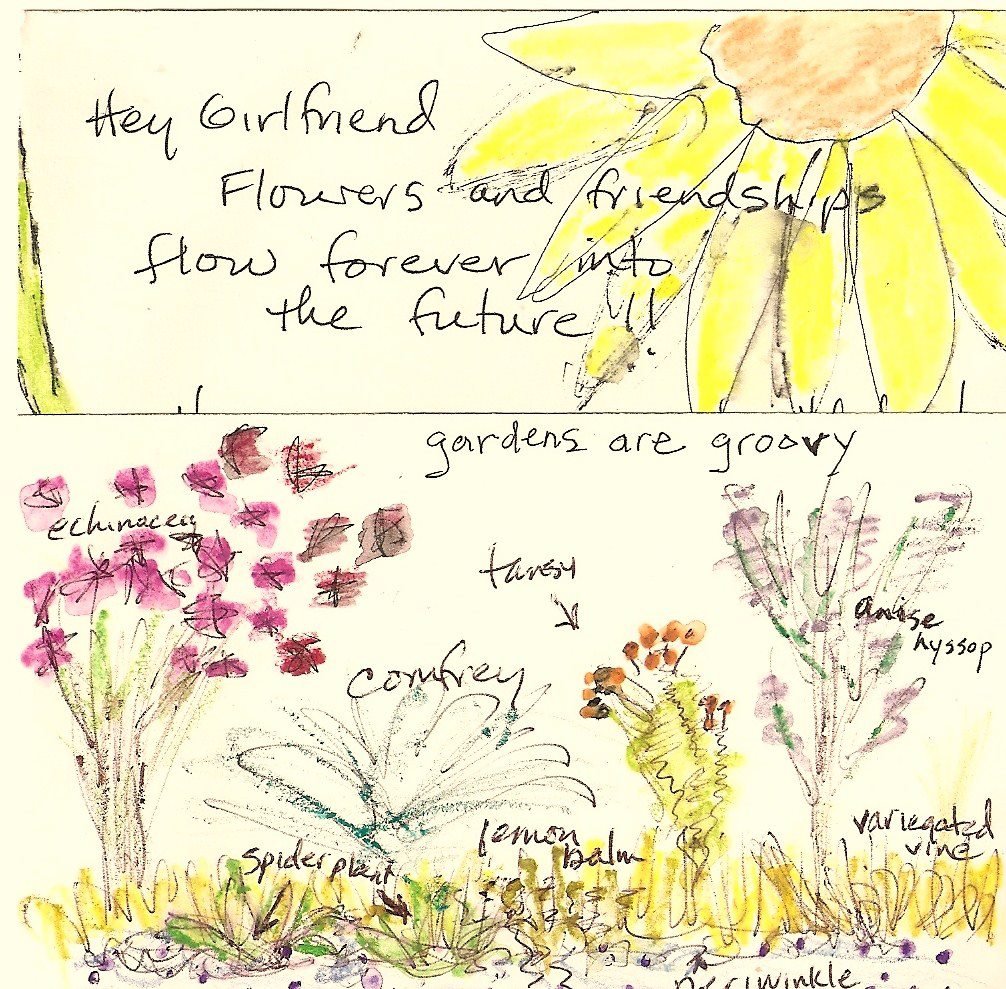 Hey Girlfriend
Flowers and friendships
flow forever into
the future!!
gardens are groovy
echinacea
tansy
anise
hyssop
comfrey
variegated
vine
lemon
balm
spider plant
periwinkle